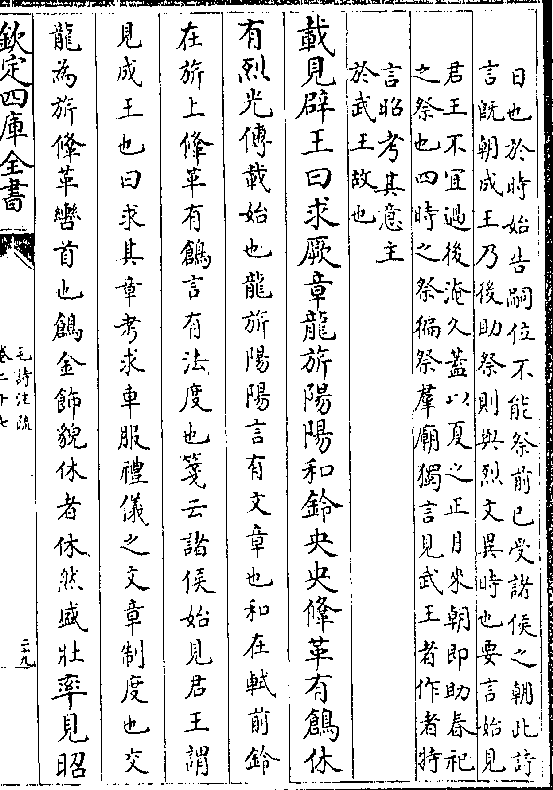 日也於時始告嗣位不能祭前已受諸侯之朝此詩
言既朝成王乃後助祭則與烈文異時也要言始見
君王不宜過後淹久蓋以夏之正月來朝即助春祀
之祭也四時之祭徧祭羣廟獨言見武王者作者特
言昭考其意主
於武王故也
載見辟王曰求厥章龍旂陽陽和鈴央央鞗革有鶬休
有烈光傳載始也龍旂陽陽言有文章也和在軾前鈴
在旂上鞗革有鶬言有法度也箋云諸侯始見君王謂
見成王也曰求其章考求車服禮儀之文章制度也交
龍為旂鞗革轡首也鶬金飾貌休者休然盛壯率見昭
欽定四庫全書
毛詩注疏
卷二十七
二十九